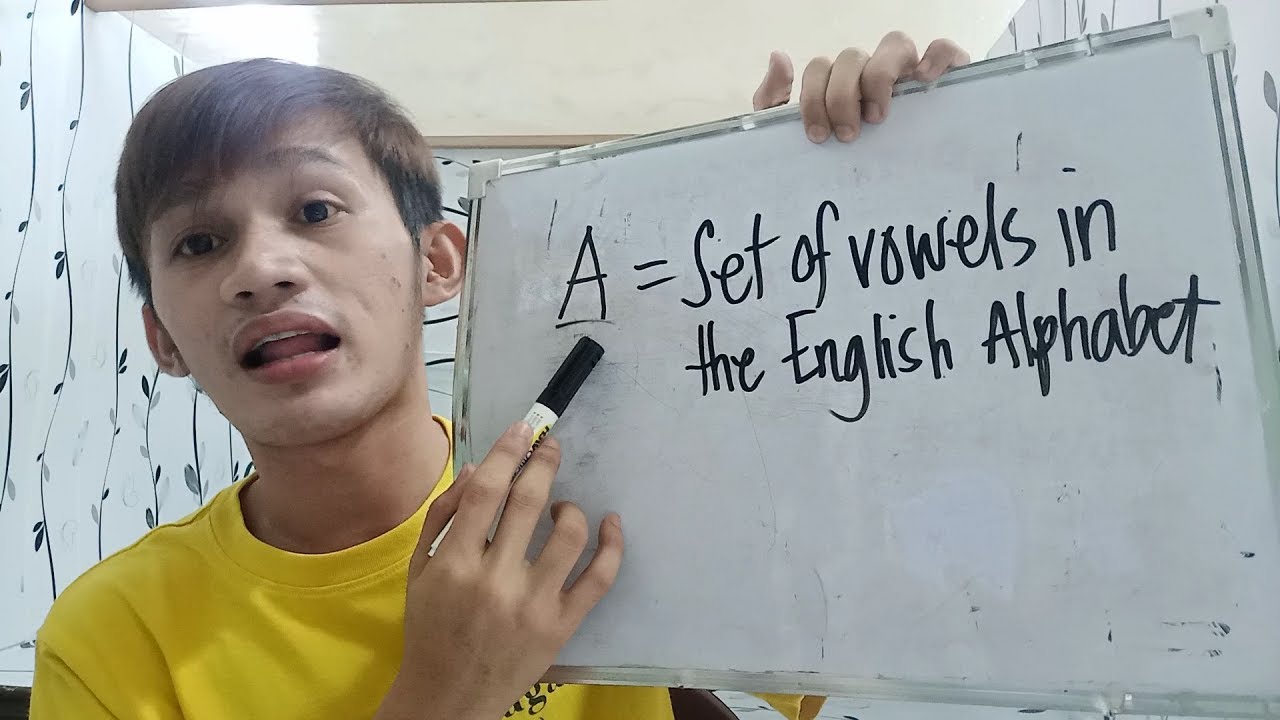 A = Set of vowels in
the English Alphabet